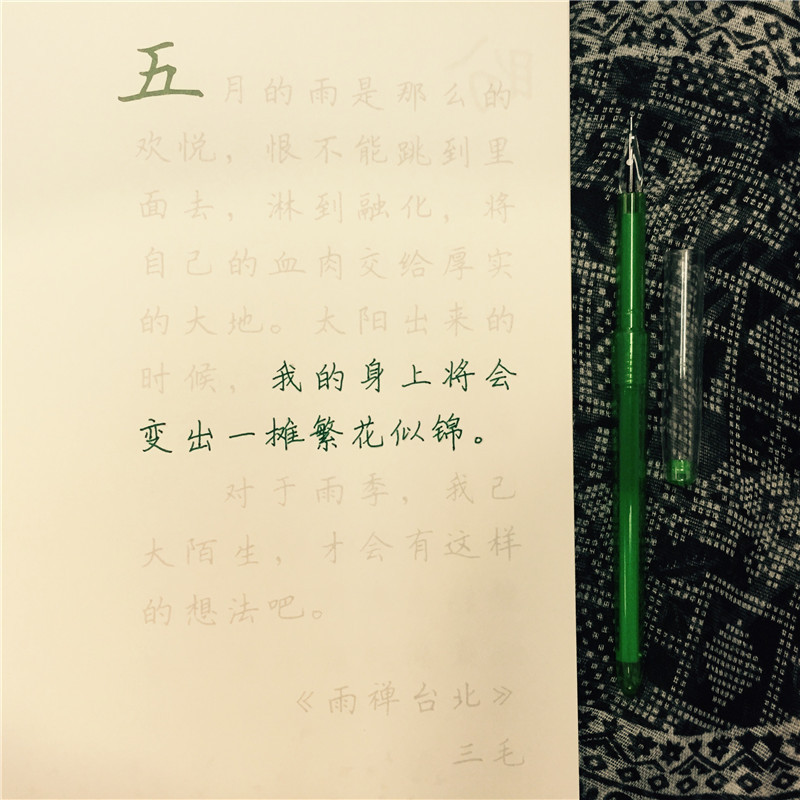 五月的雨是那么的
欢悦，恨不能跳到里
面去，淋到融化，将
自己的血肉交给厚实
的大地。太阳出来的
时候，我的身上将会
变出一摊繁花似锦。
对于雨季，我已
大陌生，才会有这样
的想法吧。
《雨禅台北》
三毛